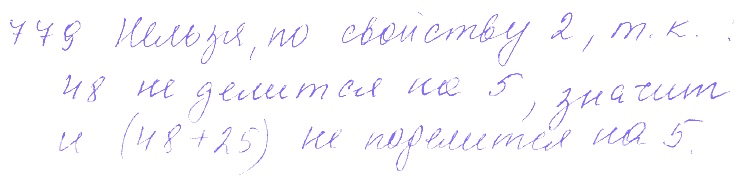 779 Нельзя, по свойству 2, т.к. :
48 не делится на 5, значит
и (48+25) не поделится на 5.